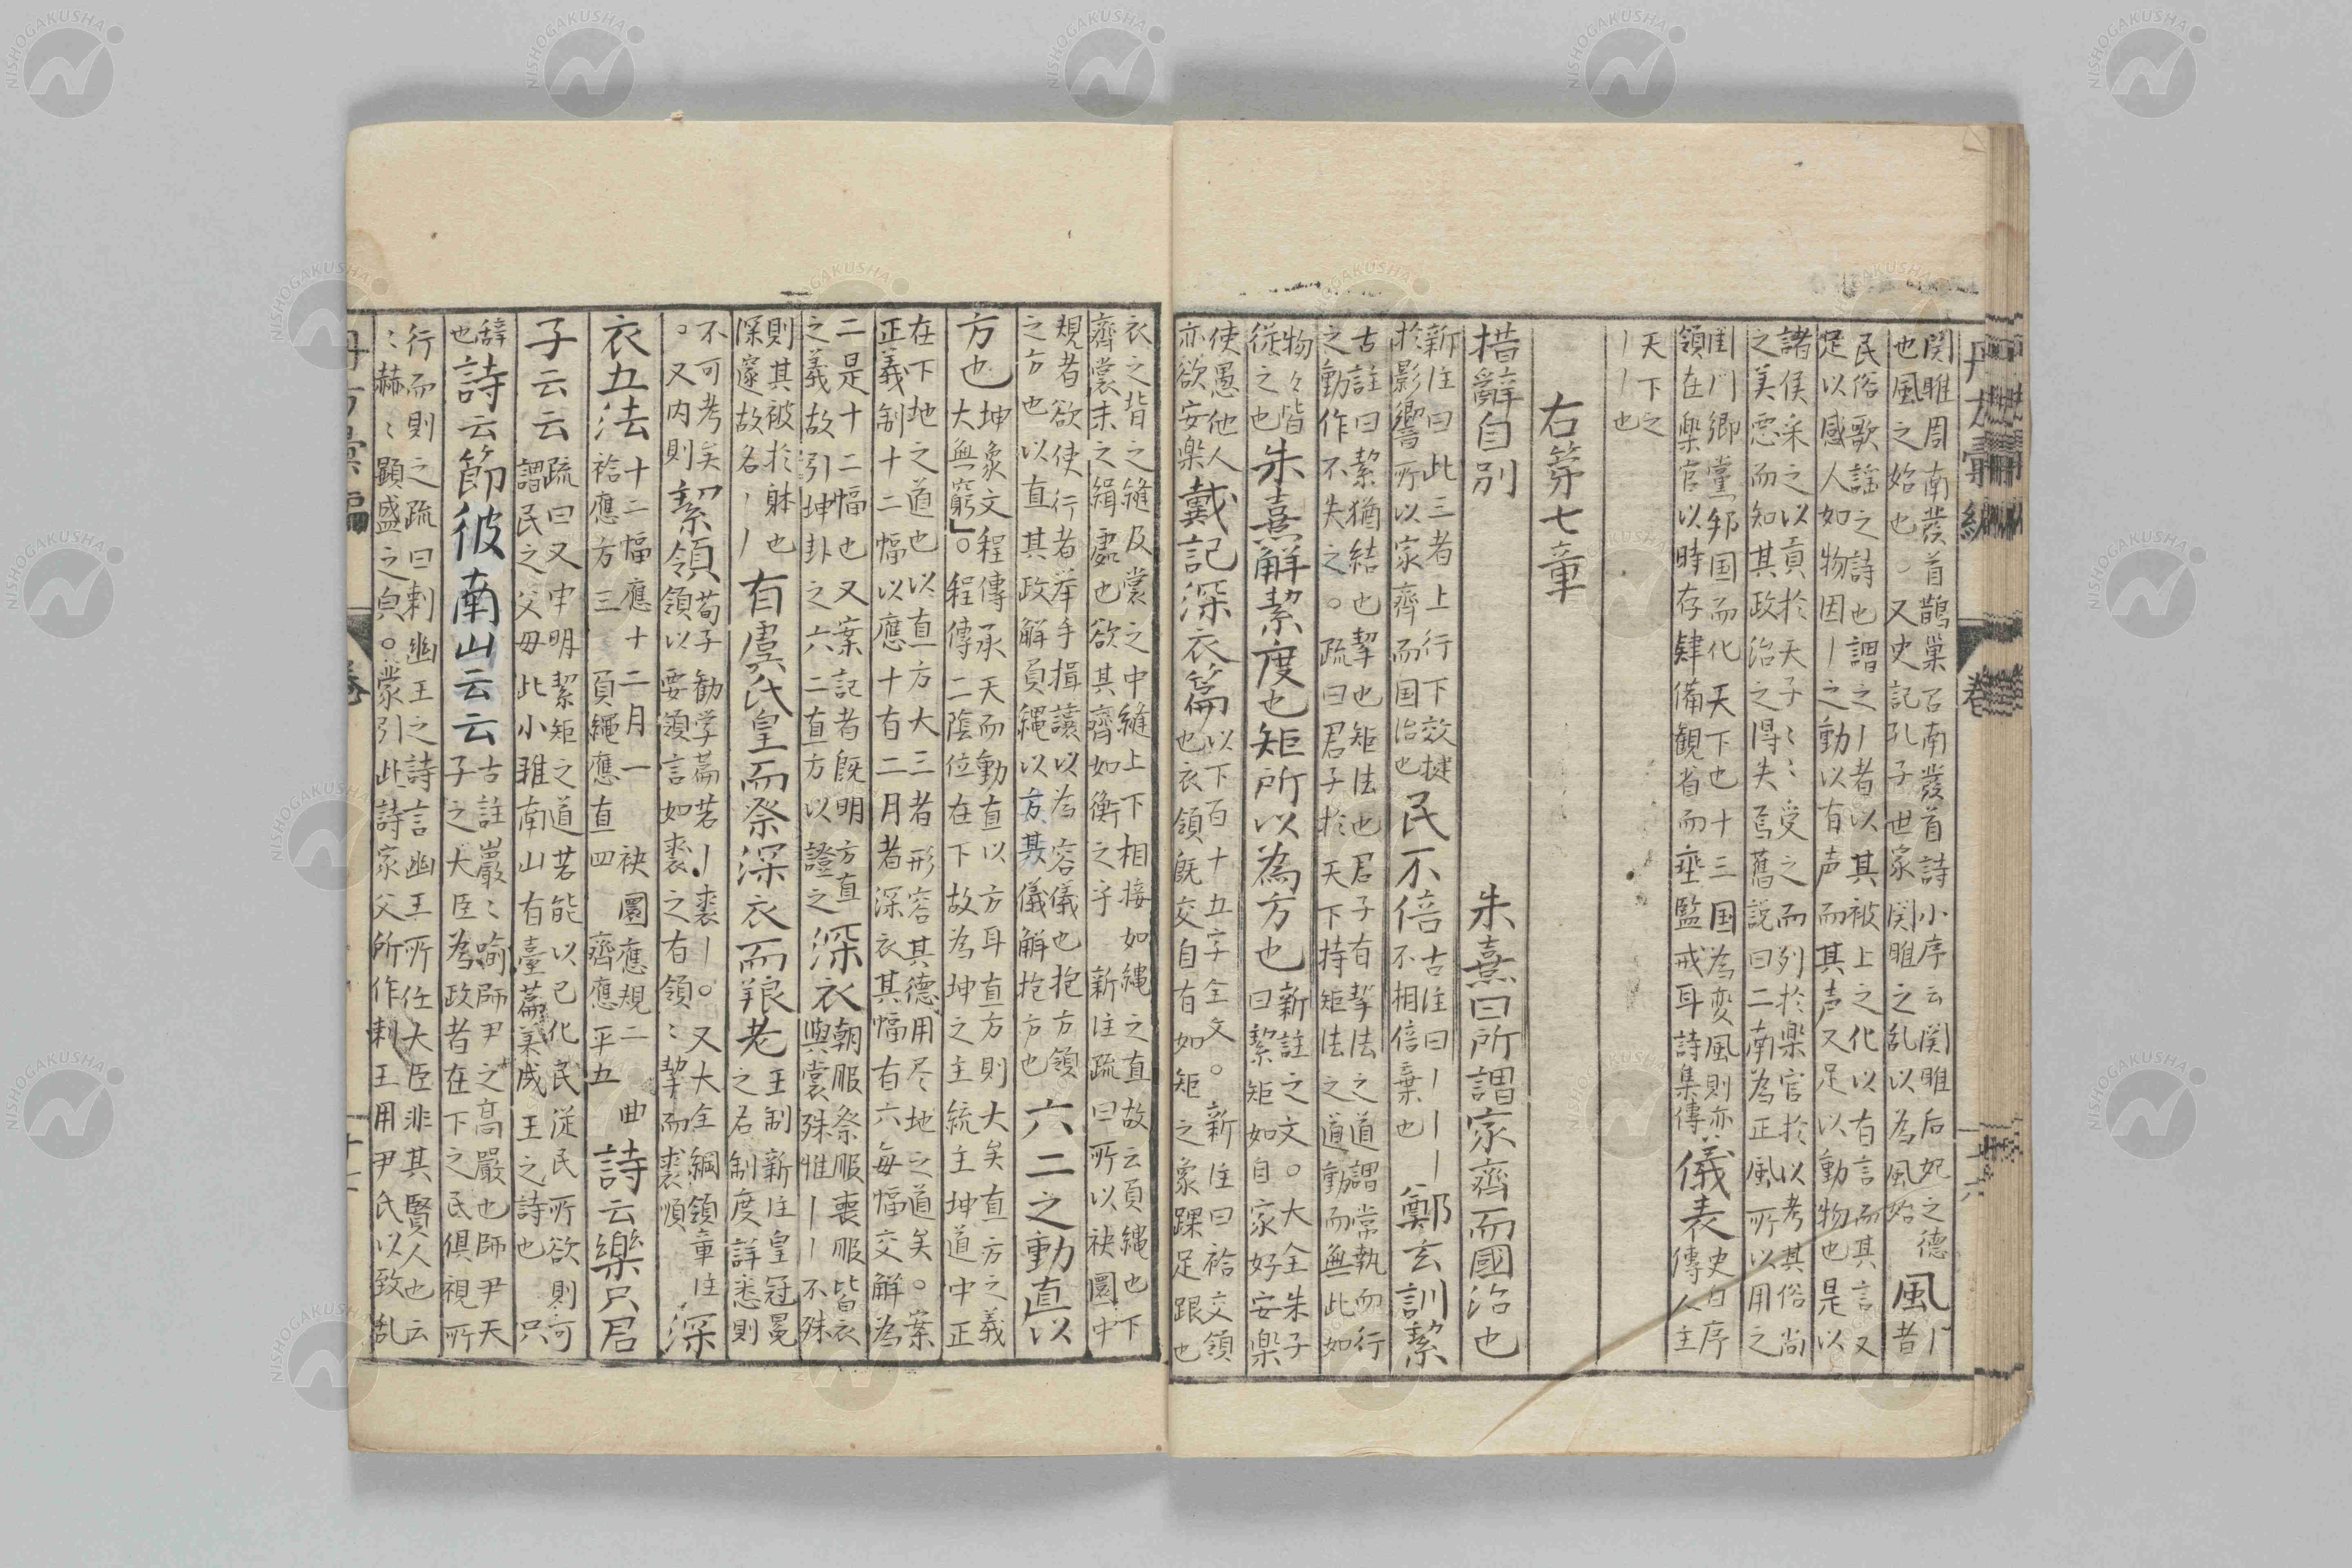 関雎周南発首鵲巣召南発首詩小序云関雎后妃之德
也風之始也○又史記孔子世家関雎之乱以為風始
風
昔
民俗歌謡之詩也謂之〡者以其被上之化以有言而其言又
足以感人如物因〡之動以有声而其声又足以動物也是以
諸侯采之以貢於天子〻〻受之而列於楽官於以考其俗尚
之美悪而知其政治之得失焉舊説曰二南為正風所以用之
閨門郷黨邦国而化天下也十三国為変風則亦
領在楽官以時存肄備観省而垂監戒耳詩集傳
儀表
史自序
傳人主
天下之
〡〡也
右第七章
朱熹曰所謂家齊而國治也
措辭自別
新注曰此三者上行下效捷
於影響所以家齊而国治也
民不倍
古注曰〡〡〡
不相倍棄也
鄭玄訓絜
古註曰絜猶結也挈也矩法也君子有挈法之道謂常執而行
之動作不失之○疏曰君子於天下持矩法之道動而無此如
物々皆
従之也
朱熹解絜度也矩所以為方也
新註之文○大全朱子
曰絜矩如自家好安楽
使愚他人
亦欲安楽
戴記深衣篇
以下百十五字全文○新注曰袷交領
也衣領既交自有如矩之象踝足跟也
衣之背之縫及裳之中縫上下相接如縄之直故云負縄也下
齊裳末之緝處也欲其齊如衡之平 新注疏曰所以袂圜中
規者欲使行者挙手揖譲以為容儀也抱方領
之方也以直其政解負縄以方其儀解抱方也
六二之動直以
方也
坤象文程傳承天而動直以方耳直方則大矣直方之義
大無窮」○程傳二陰位在下故為坤之主統主坤道中正
在下地之道也以直方大三者形容其德用尽地之道矣○案
正義制十二幅以應十有二月者深衣其幅有六毎幅交解為
二是十二幅也又案記者既明方直
之義故引坤卦之六二直方以證之
深衣
朝服祭服喪服皆衣
與裳殊惟〡〡不殊
則其被於躰也
深邃故名〡〡
有虞氏皇而祭深衣而粮老
王制新注皇冠冕
之名制度詳悉則
不可考矣
○又内則
絜領
荀子勧学篇若〡裘〡○又大全綱領章注
領以要領言如裘之有領〻挈而裘順
深
衣五法
十二幅應十二月一 袂圜應規二
袷應方三 負縄應直四 齊應平五
曲
詩云樂只君
子云云
疏曰又申明絜矩之道若能以己化民従民所欲則可
謂民之父母此小雅南山有臺篇美成王之詩也 只
辞
也
詩云節彼南山云云
古註巖〻喻師尹之高嚴也師尹天
子之大臣為政者在下之民倶視所
行而則之疏曰刺幽王之詩言幽王所任大臣非其賢人也云
〻赫〻顕盛之皃○蒙引此詩家父所作刺王用尹氏以致乱